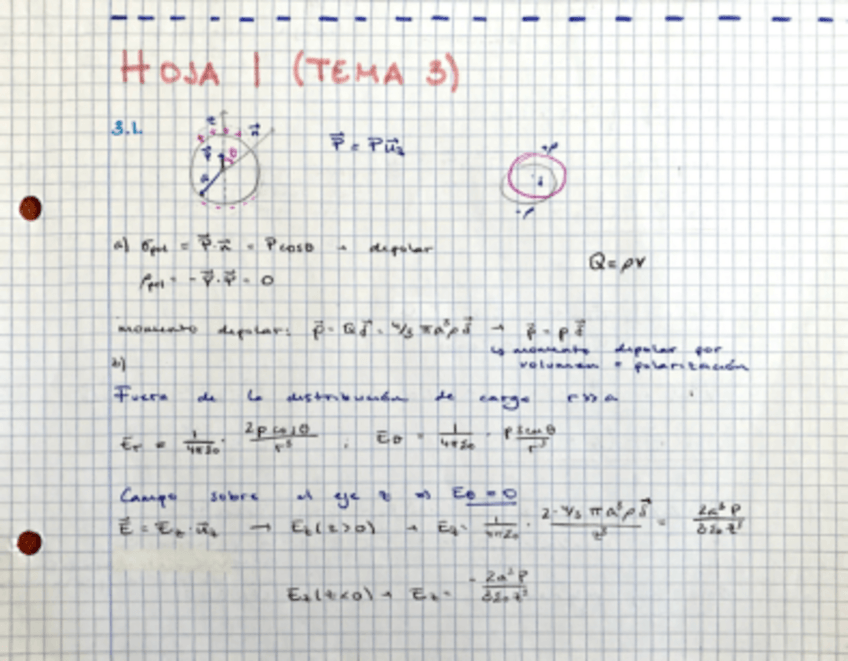 HOJA 1 (TEMA 3)
3.1.
z
n⃗
P⃗
θ
a
P⃗ = P u⃗z
+ρ
δ
-ρ
a) σpol = P⃗·n⃗ = Pcosθ → dipolar
Q = ρV
ρpol = -∇⃗·P⃗ = 0
momento dipolar: p⃗ = Qδ⃗ = 4/3 πa³ρδ⃗ → P⃗ = ρδ⃗
↳ momento dipolar por
volumen = polarización
b)
Fuera de la distribución de carga r>>a
Er = 1/4πε0 · 2pcosθ/r³ ; Eθ = 1/4πε0 · psenθ/r³
Campo sobre el eje z ⇒ Eθ = 0
E⃗ = Ez·u⃗z → Ez(z>0) → Ez = 1/4πε0 · 2·4/3 πa³ρδ⃗/z³ = 2a³P/3ε0z³
Ez(z<0) → Ez = -2a³P/3ε0z³